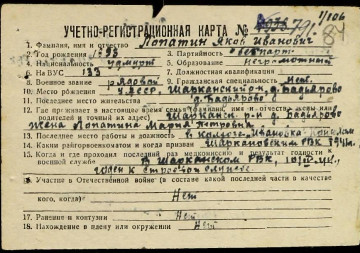 1/106
УЧЕТНО-РЕГИСТРАЦИОННАЯ КАРТА №
84
1. Фамилия, имя и отчество Лопатин Яков Иванович
2. Год рождения 1898 3. Партийность беспарт
4. Национальность удмурт 5. Образование неграмотный
6. На ВУС 133 7. Должностная квалификация
8. Военное звание рядовой 9. Гражданская специальность нет.
10. Место рождения УАССР, Шарканский р-н, д. Бадьярово
11. Последнее место жительства д. Бадьярово
12. Где проживает в настоящее время семья фамилия имя и отчество жены или
родителей и точный их адрес) Шарканск. р-н д. Бадьярово
жена Лопатина Мария Петровна
13. Последнее место работы и в колхозе
14. Каким райгорвоенкоматом и когда призван Шаркановским РВК 1941
15. Когда и где проходил последний раз медкомиссию и результат годности к
военной службе в Шарканском РВК,
годен к строевой службе
16. Участие в Отечественной войне (в составе какой последней части в качестве
кого, когда) Нет
17. Ранение и контузии Нет
18. Нахождение в плену или окружении Нет